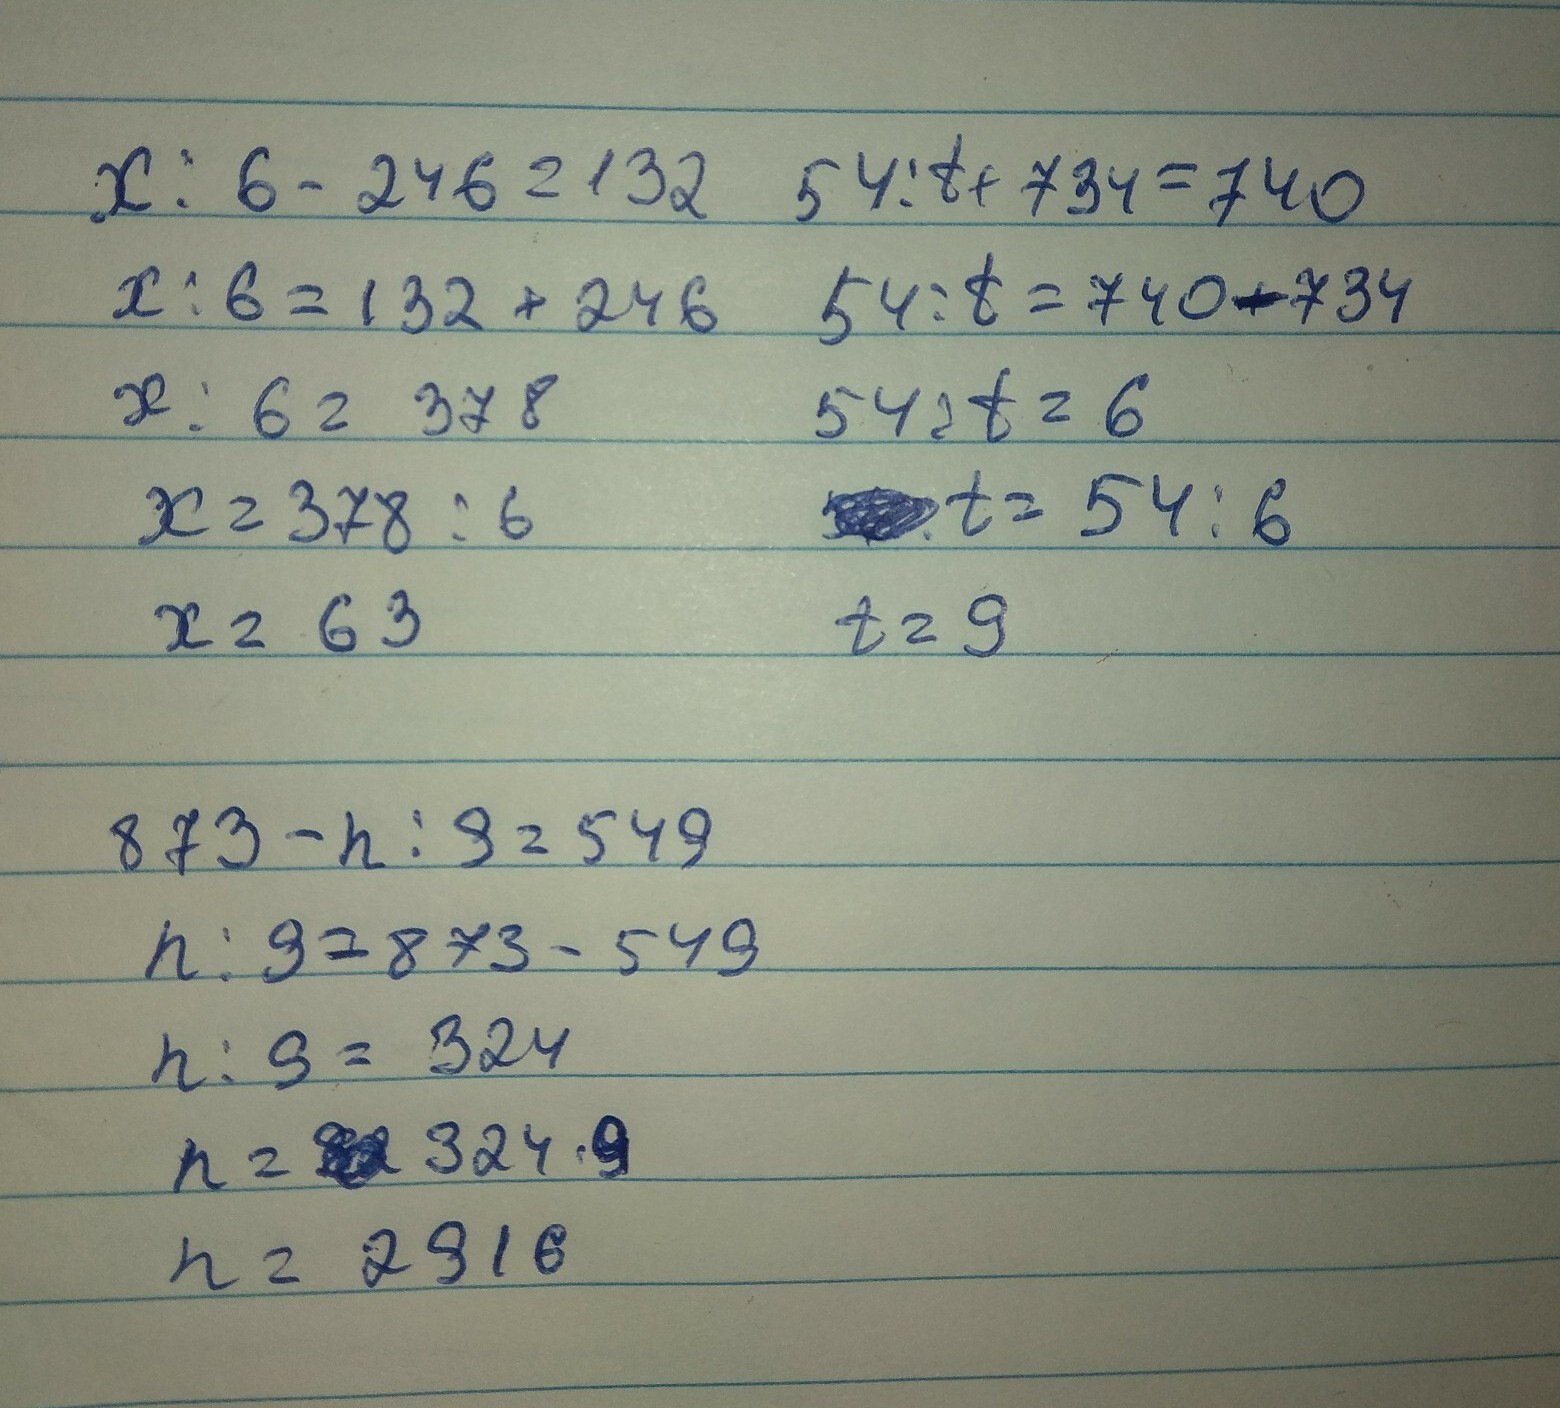 x : 6 - 246 = 132
x : 6 = 132 + 246
x : 6 = 378
x = 378 : 6
x = 63
54 : t + 734 = 740
54 : t = 740 - 734
54 : t = 6
t = 54 : 6
t = 9
873 - n : 9 = 549
n : 9 = 873 - 549
n : 9 = 324
n = 324 · 9
n = 2916